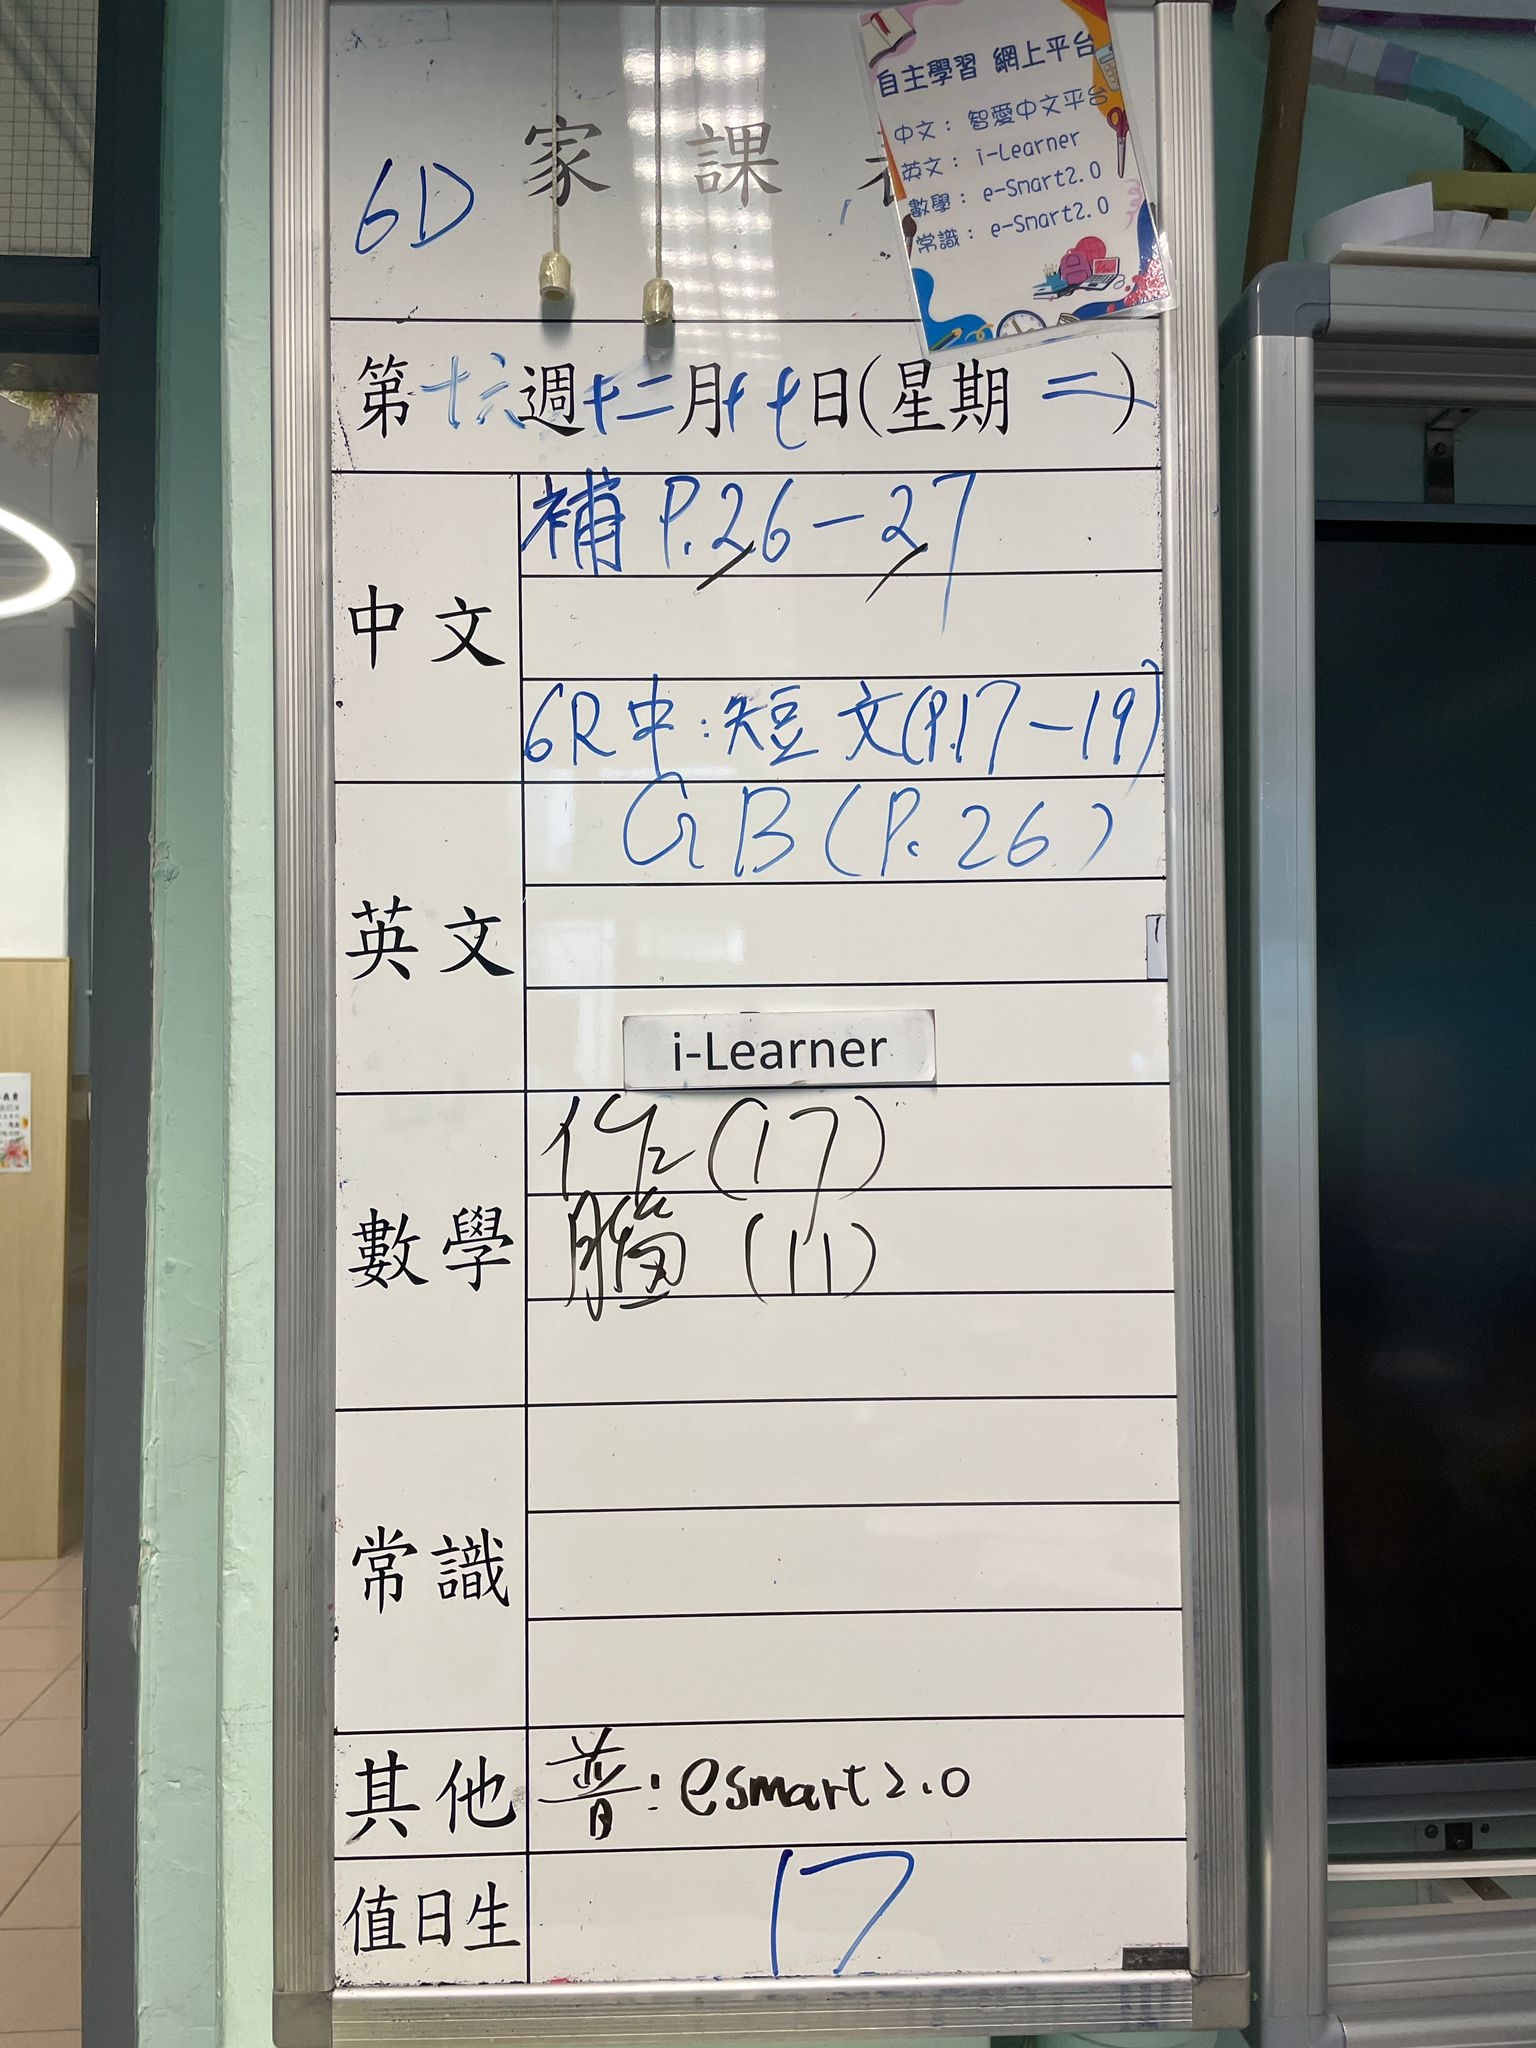 6D 家課
自主學習 網上平台
中文：智愛中文平台
英文：i-Learner
數學：e-Smart2.0
常識：e-Smart2.0
第十六週十二月十七日(星期二)
中文
補 P.26-27
6R中:短文(P.17-19)
英文
GB(P.26)
i-Learner
數學
作(17)
腦(11)
常識
其他
普:esmart2.0
值日生
17